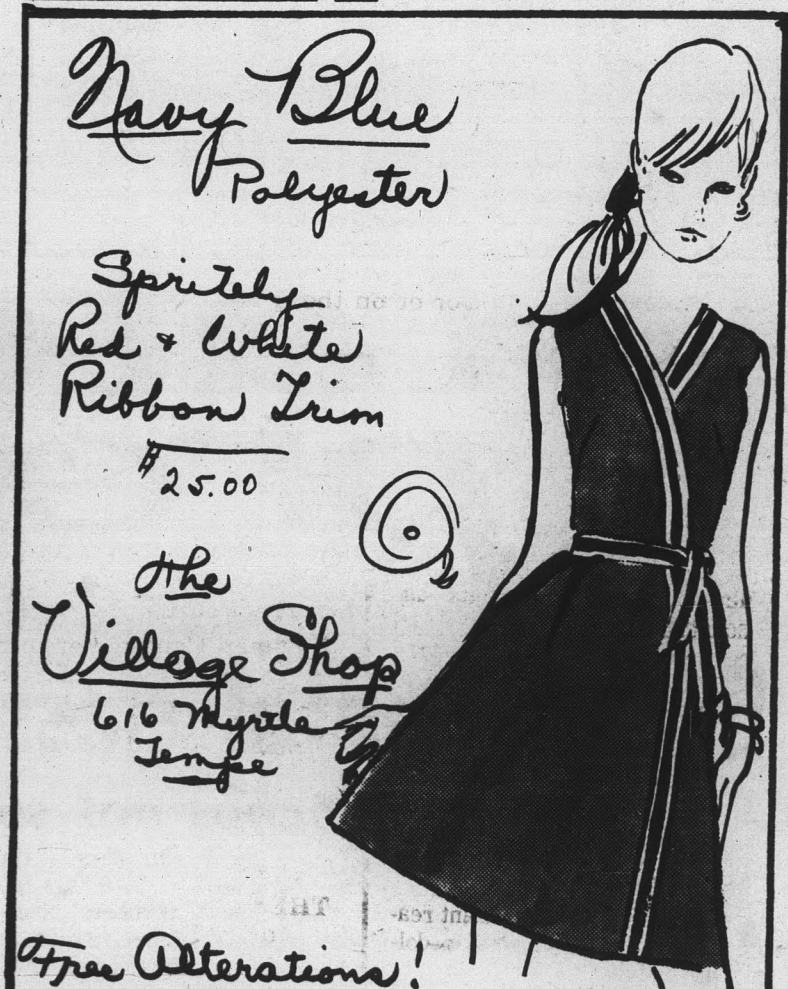 Navy Blue
Polyester
Spritely
Red & White
Ribbon Trim
$25.00
the
Village Shop
616 Myrtle
Tempe
Free Alterations!